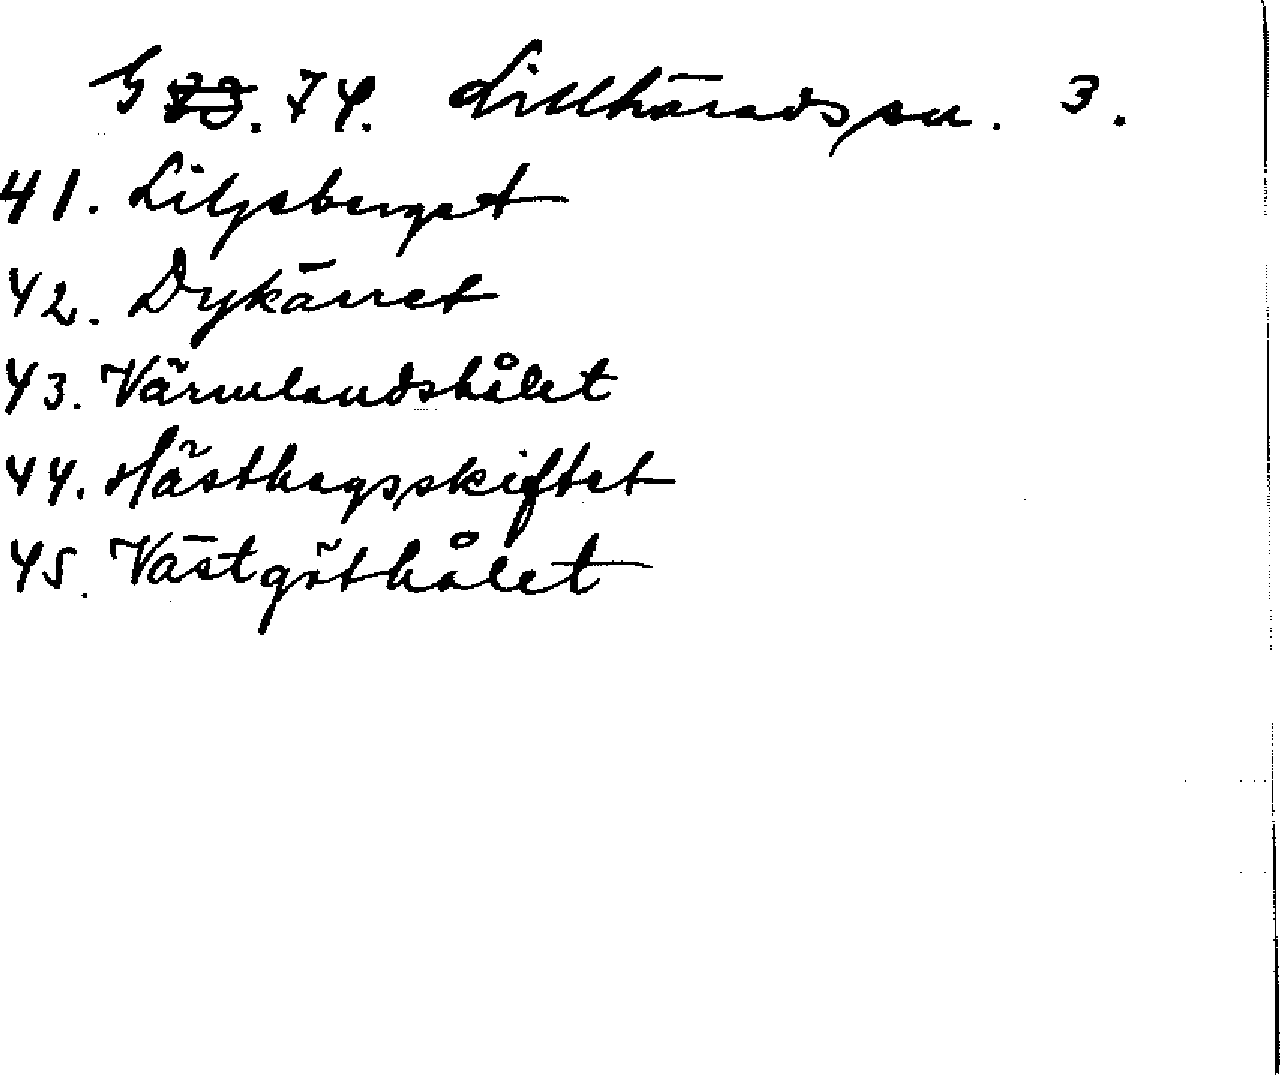 G 73. 74. Lillhäradssn. 3.
41. Liljeberget
42. Dykärret
43. Värmlandshålet
44. Hästhagsskiftet
45. Västgöthålet